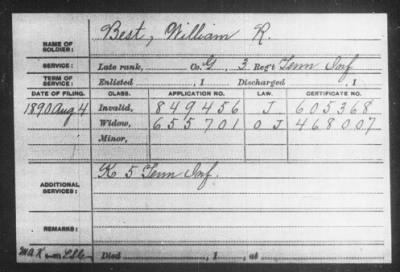 Best, William R.
NAME OF SOLDIER:
SERVICE: Late rank, Co. G, 3 Reg't Tenn Inf
TERM OF SERVICE: Enlisted , 1 Discharged , 1
DATE OF FILING. CLASS. APPLICATION NO. LAW. CERTIFICATE NO.
1890 Aug 4 Invalid, 849456 J 605368
Widow, 655701 O J 468007
Minor,
K 5 Tenn Inf.
ADDITIONAL SERVICES:
REMARKS:
Died , 1 , at